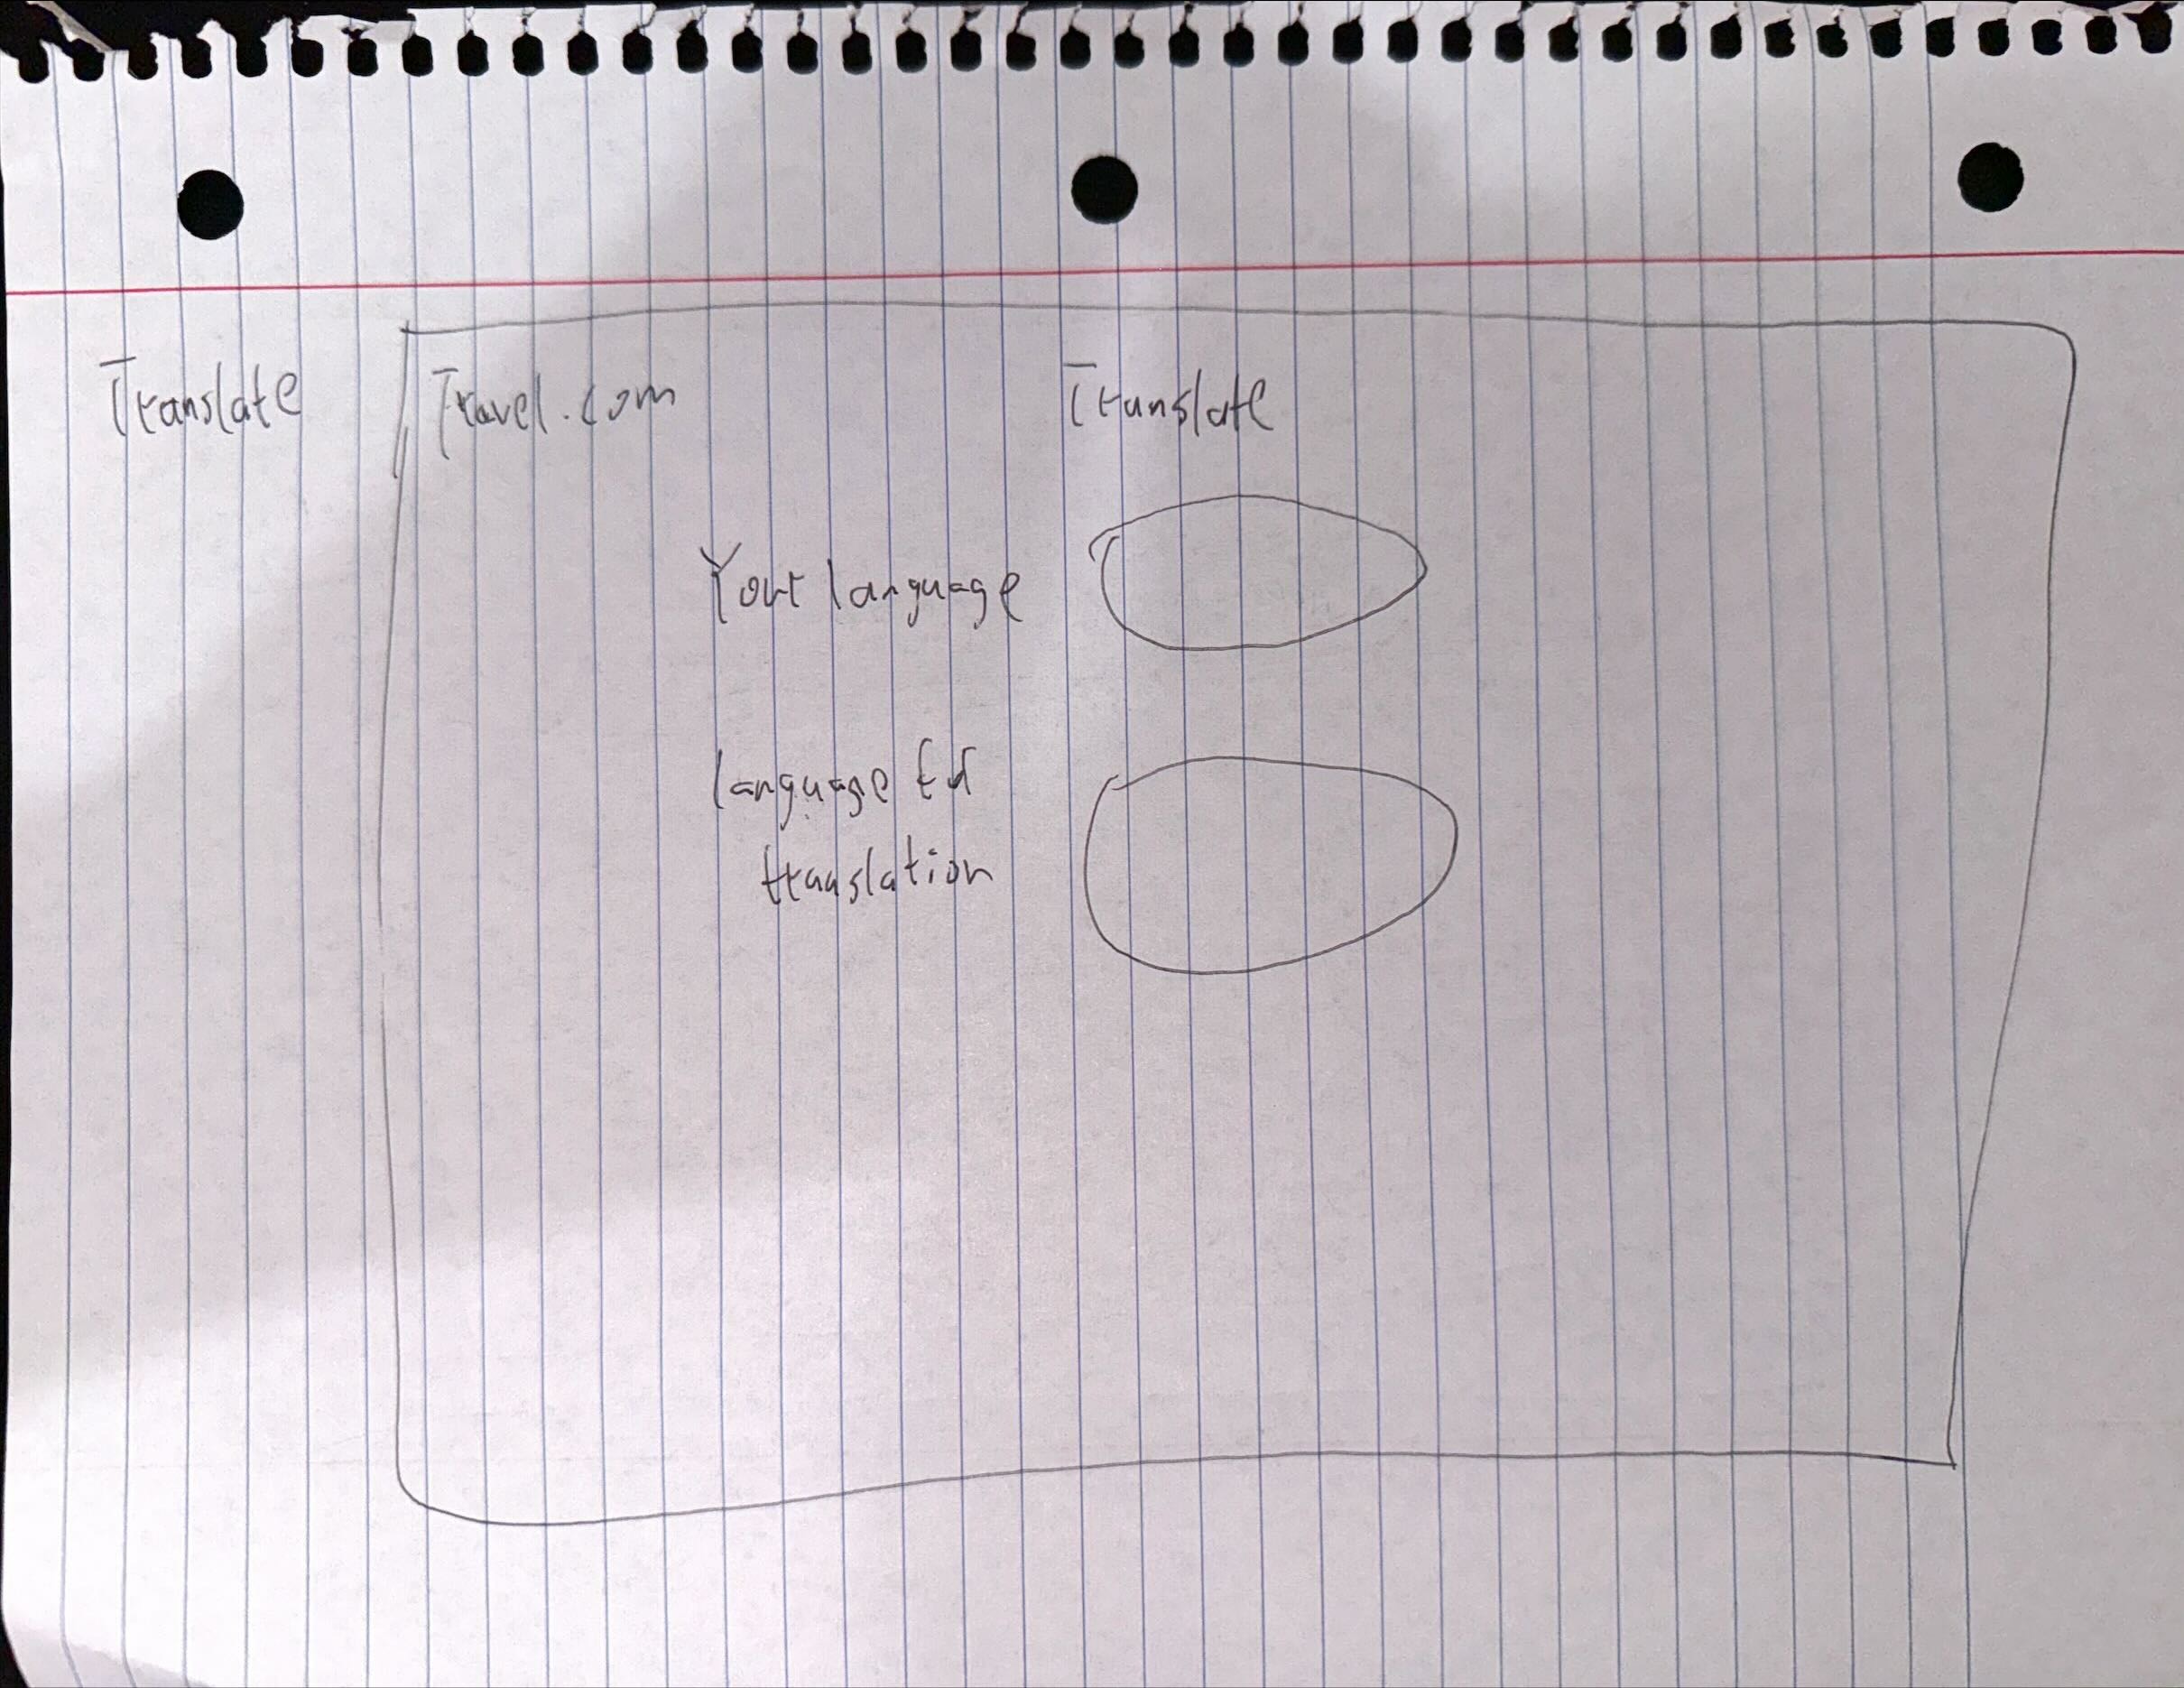 Translate
Travel.com
Translate
Your language
language
translation